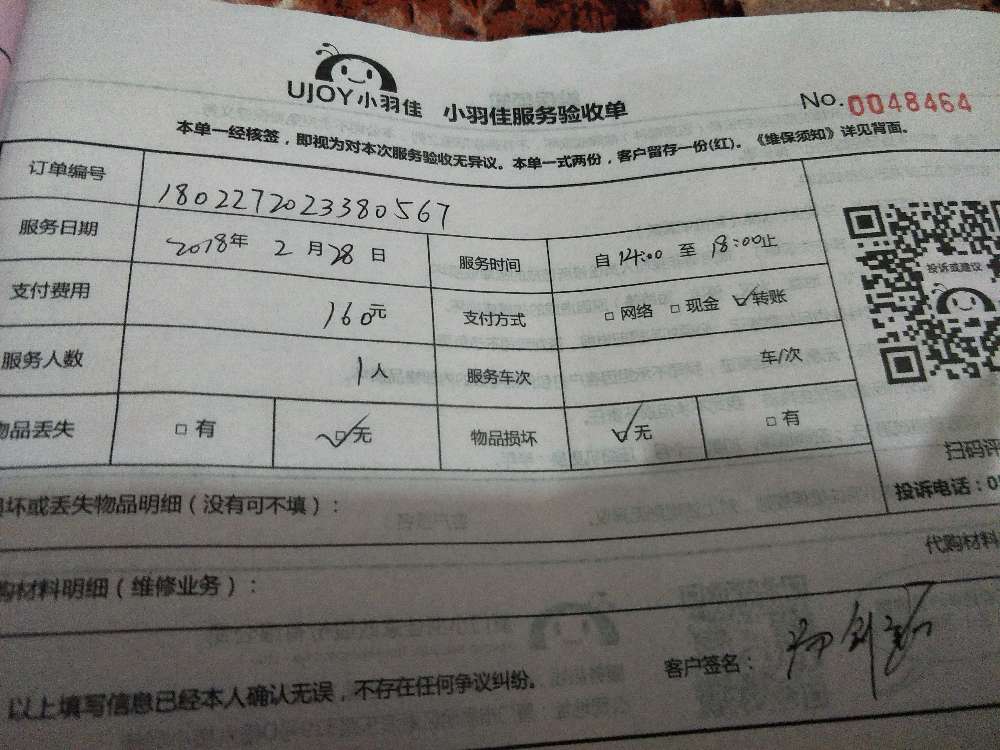 UJOY小羽佳 小羽佳服务验收单 No. 0048464
本单一经核签，即视为对本次服务验收无异议。本单一式两份，客户留存一份(红)。《维保须知》详见背面。
订单编号 1802272023380567
服务日期 2018年 2月28日 服务时间 自14:00 至 18:00止
支付费用 160元 支付方式 □网络 □现金 ☑转账
服务人数 1人 服务车次 车/次
物品丢失 □有 ☑无 物品损坏 ☑无 □有
投诉或建议
扫码评
投诉电话：0
坏或丢失物品明细（没有可不填）：
代购材料
购材料明细（维修业务）：
以上填写信息已经本人确认无误，不存在任何争议纠纷。 客户签名：